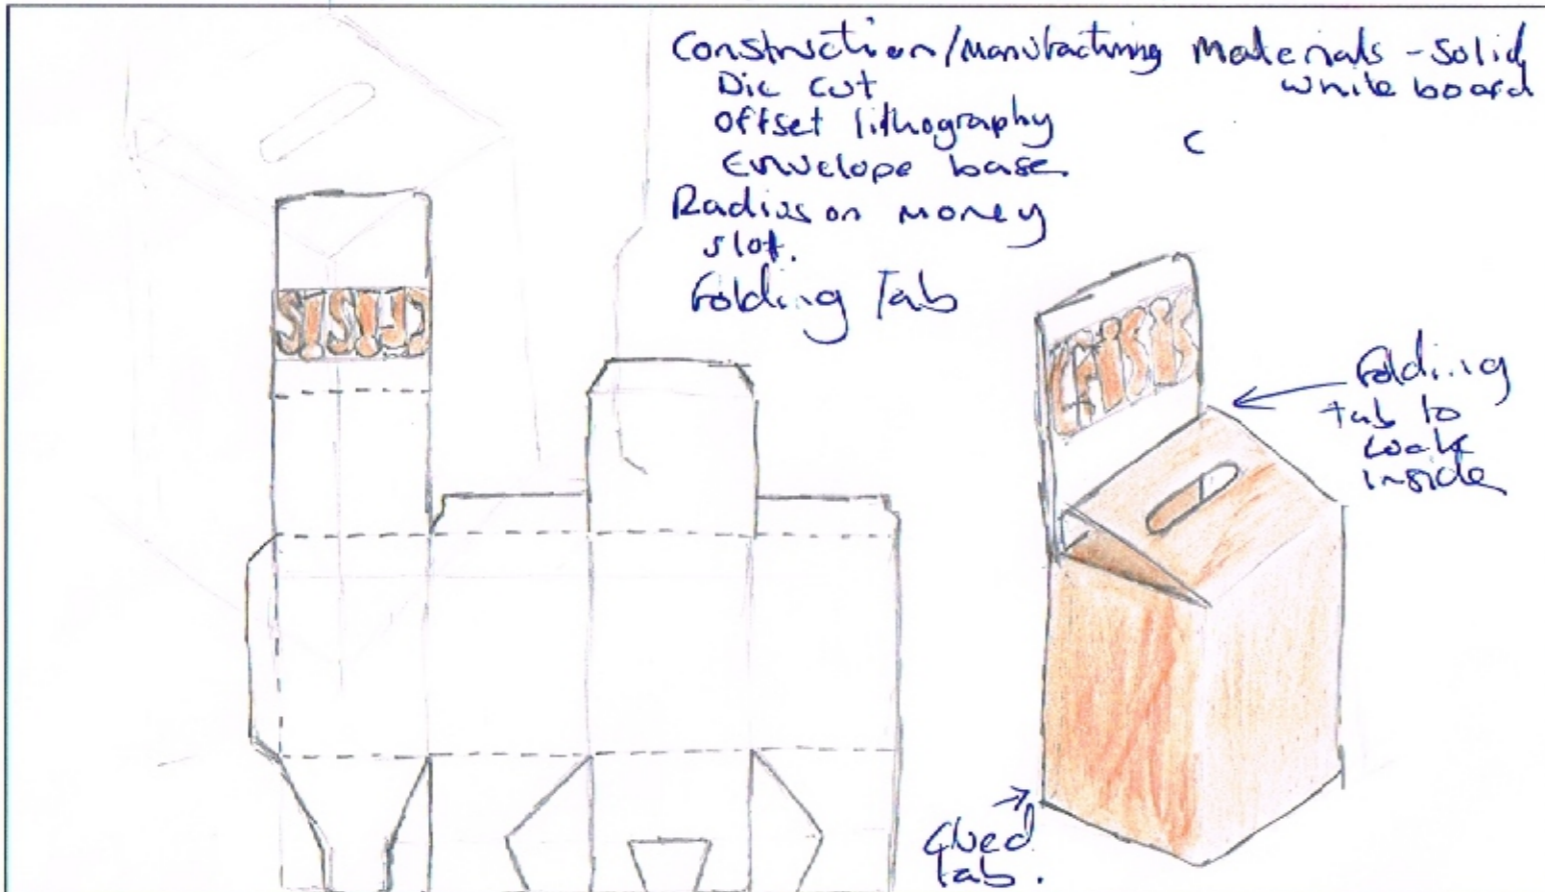 Construction/Manufacturing Materials - Solid
white board
Die cut
offset lithography
Envelope base
C
Radius on money
slot.
Folding Tab
CRISIS
CRISIS
Folding
tab to
inside
Glued
tab.